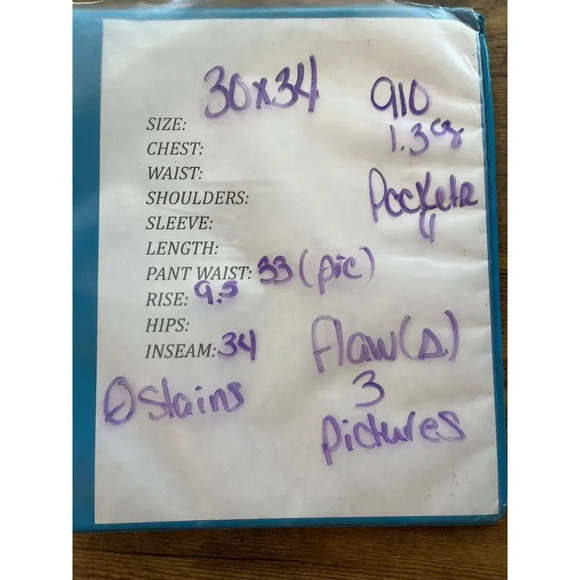 30x34
910
SIZE:
1.3
CHEST:
WAIST:
SHOULDERS:
Pockets
4
SLEEVE:
LENGTH:
PANT WAIST: 33 (pic)
RISE: 9.5
HIPS:
INSEAM: 34
flaw(s)
0 stains
3
pictures